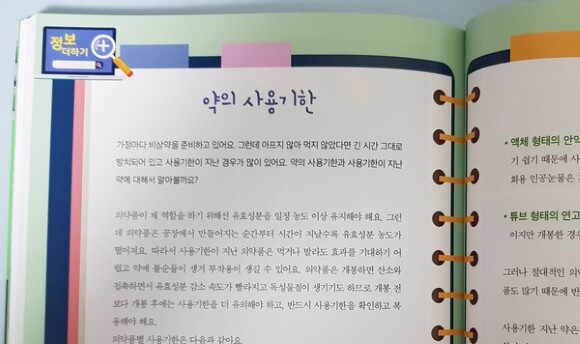 정보
더하기
약의 사용기한
가정마다 비상약을 준비하고 있어요. 그런데 아프지 않아 먹지 않았다면 긴 시간 그대로
방치되어 있고 사용기한이 지난 경우가 많이 있어요. 약의 사용기한과 사용기한이 지난
약에 대해서 알아볼까요?
의약품이 제 역할을 하기 위해선 유효성분을 일정 농도 이상 유지해야 해요. 그런
데 의약품은 공장에서 만들어지는 순간부터 시간이 지날수록 유효성분 농도가
떨어져요. 따라서 사용기한이 지난 의약품은 먹거나 발라도 효과를 기대하기 어
렵고 약에 불순물이 생겨 부작용이 생길 수 있어요. 의약품은 개봉하면 산소와
접촉하면서 유효성분 감소 속도가 빨라지고 독성물질이 생기기도 하므로 개봉 전
보다 개봉 후에는 사용기한을 더 유의해야 하고, 반드시 사용기한을 확인하고 복
용해야 해요.
의약품별 사용기한은 다음과 같아요.
• 액체 형태의 안약
기 쉽기 때문에 사
회용 인공눈물은
• 튜브 형태의 연고
이지만 개봉한 경우
그러나 절대적인 의
품도 많기 때문에 반
사용기한 지난 약은